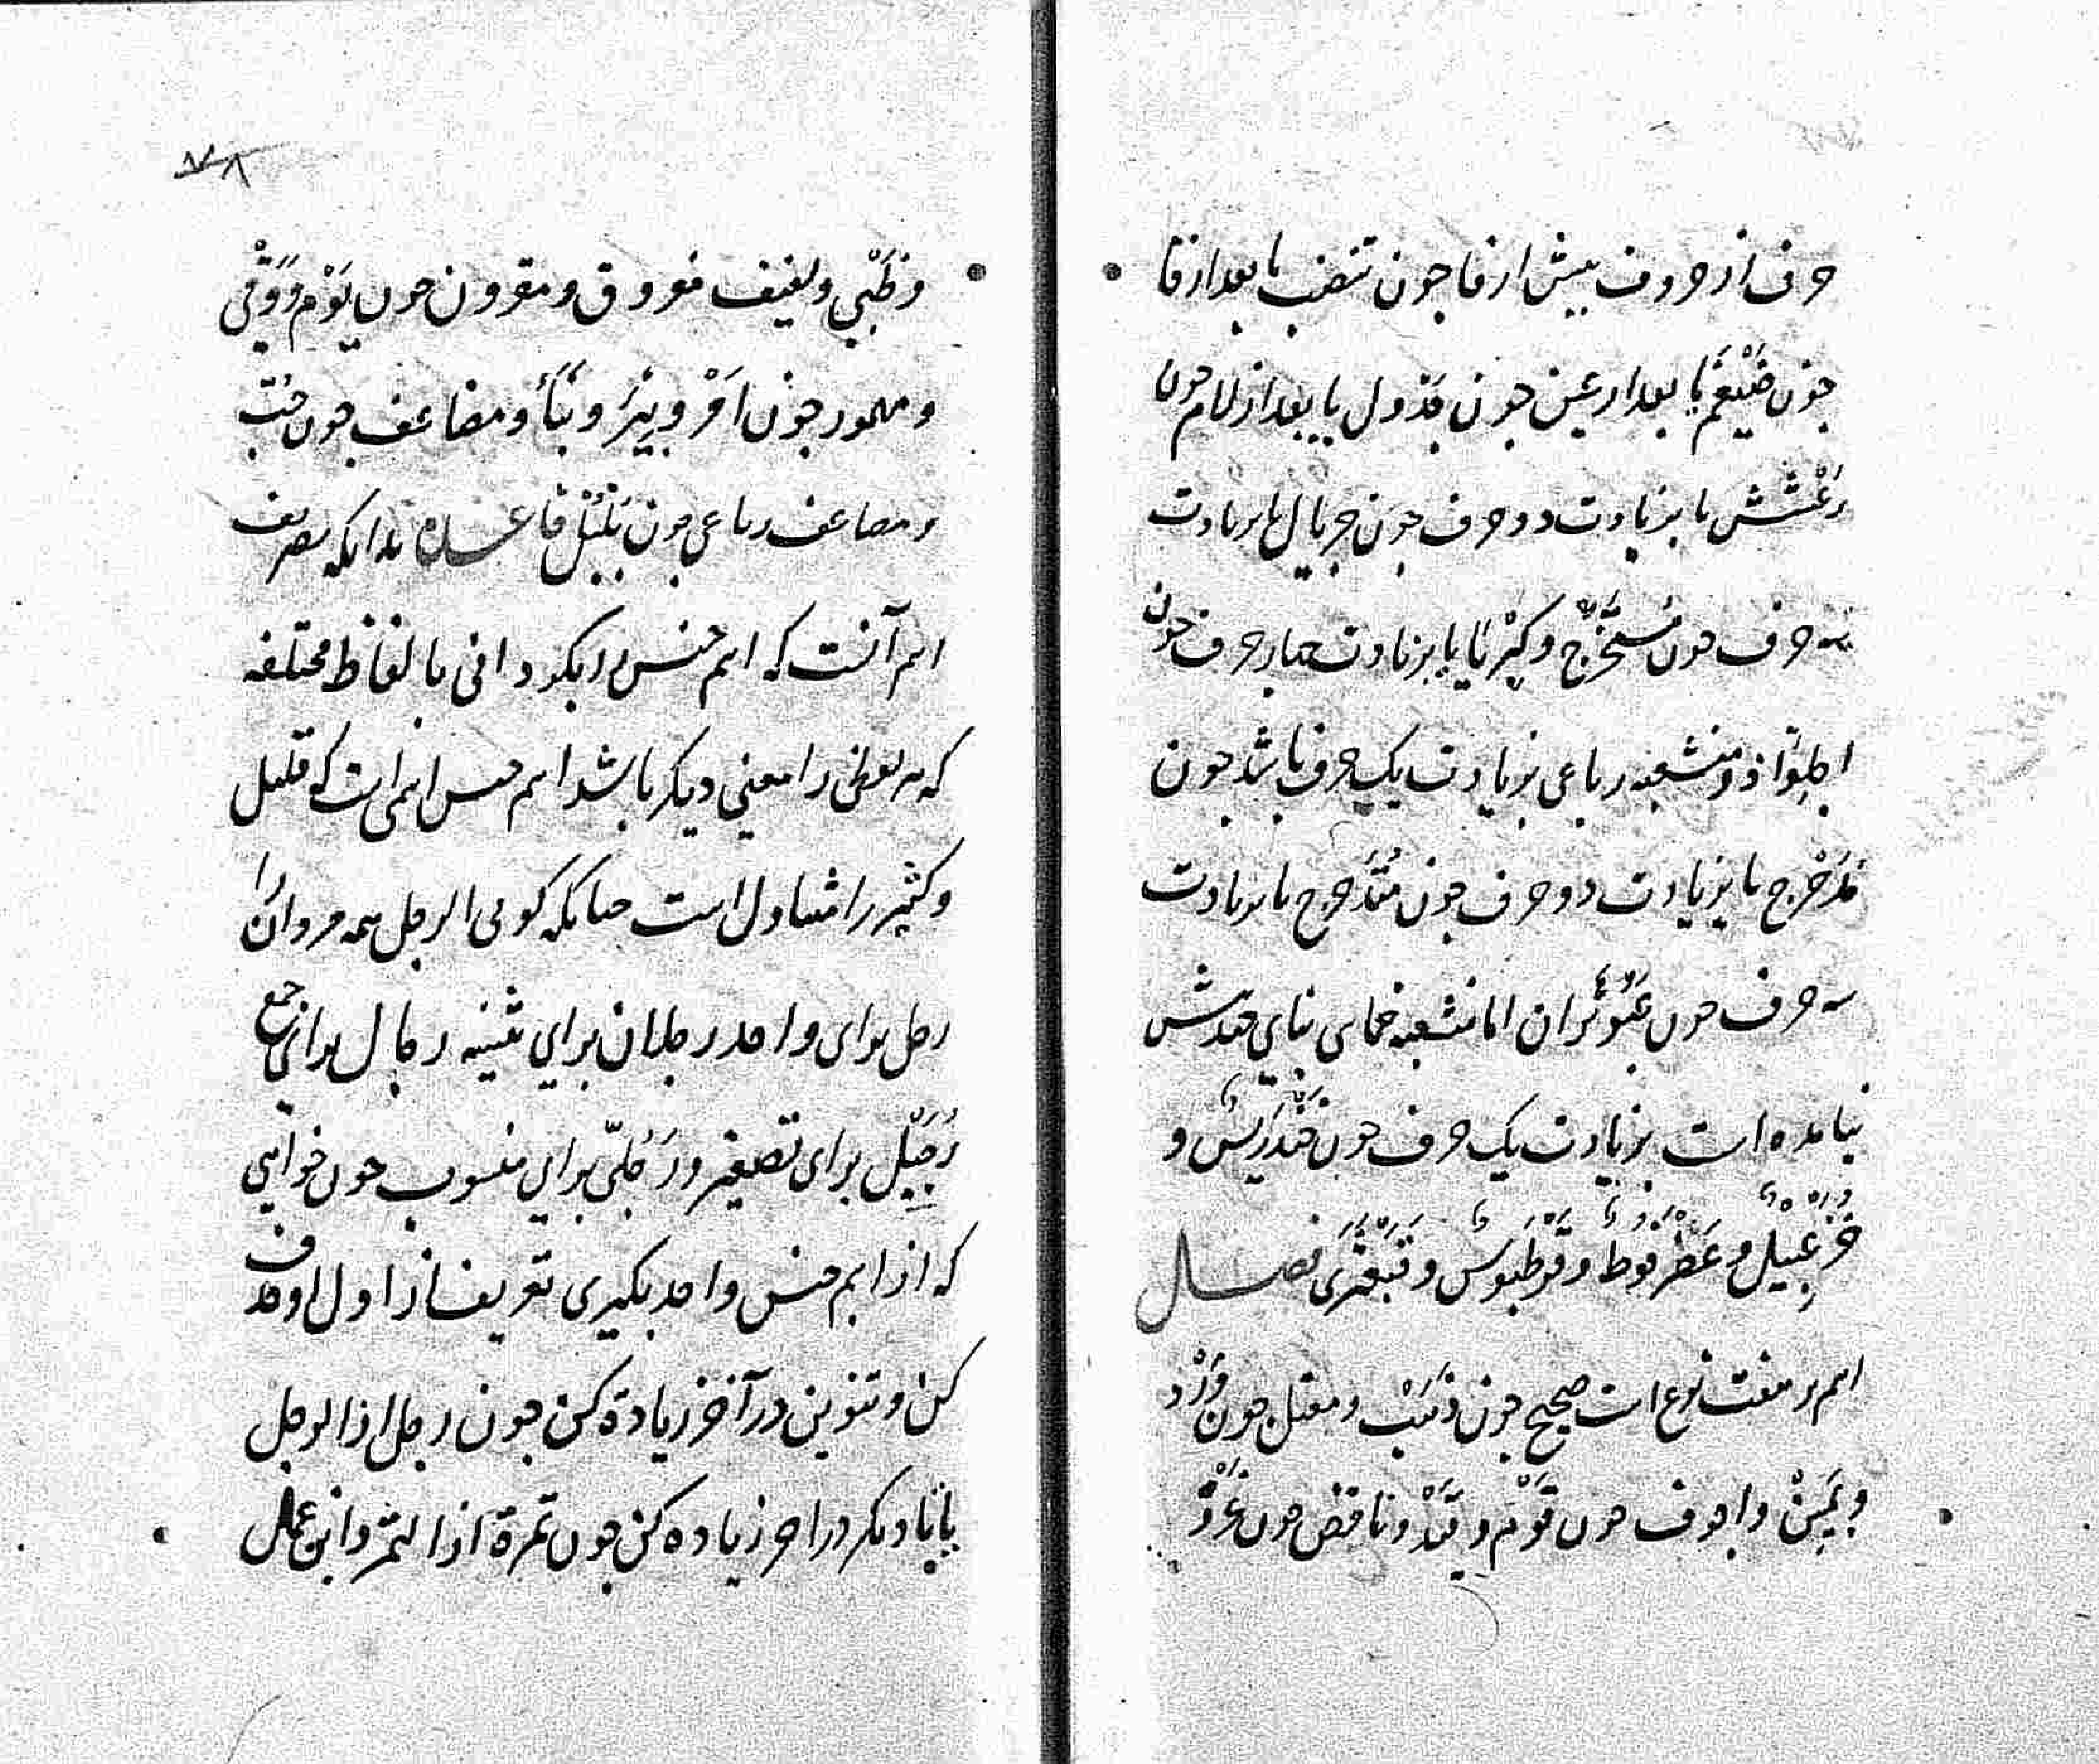 حرف از حروف پیش از فا جون تنضب یا بعد از فا
جون ضَیْغَم یا بعد از عین جون جَدْوَل یا بعد از لام جون
رَعْشَش یا بزیادت دو حرف جون جریال یا بزیادت
سه حرف جون مُسْتَخْرِج و کِبْرِیَا یا بزیادت جهار حرف جون
اجلِوّاذ و منشعبه رباعی بزیادت یک حرف باشد جون
مُدَحْرِج یا بزیادت دو حرف جون مُتَدَحْرِج یا بزیادت
سه حرف جون عَبَوْثُران اما منشعبه خماسی بنای جندش
نیامده است بزیادت یک حرف جون خَنْدَرِیْس و
خُزَعْبِیْل و عَضْرَفُوط و قِرْطَبُوس و قَبَعْثَری فصل
اسم بر هفت نوع است صحیح جون ذئب و معتل جون وَرْد
و یَمِیْن و اجوف جون قَوْم و و ناقص جون غَزْو
۷۸
و ظَبْیٍ و لفیف مفروق و مقرون جون یَوْم و وَقْی
و مهموز جون اَمْر و بِئْر و نَبَأ و مضاعف جون حُبّ
و مضاعف رباعی جون بُلْبُل فاعلم بدانکه تصریف
اسم آنست که اسم جنس را بگردانی بالفاظ مختلفه
که هر لفظی را معینی دیکر باشد اسم جنس اسمی است که قلیل
و کثیر را متناول است جنانکه کویی الرجل همه مردان را
رجل برای واحد رجلان برای تثنیه رجال برای جمع
رُجَیْل برای تصغیر و رَجُلِیّ برای منسوب جون خواهی
که از اسم جنس واحد بکیری تعریف از اول او حذف
کن و تنوین در آخر زیادة کن جون رجل از الرجل
یا تا دیکر در اخر زیاده کن جون تمرة از التمر و این عمل